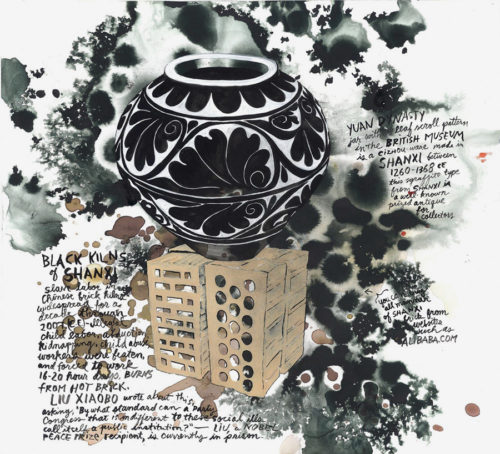 YUAN DYNASTY
jar with a leaf scroll pattern
in the BRITISH MUSEUM
is a Cizhou ware made in
SHANXI between
1260-1368 CE
this sgraffito type
from SHANXI is
a well-known
prized antique
for
collectors
BLACK KILNS
of SHANXI
slave labor in
Chinese brick kilns
widespread for a
decade through
2007
child labor abduction
kidnapping, child abuse
workers were beaten
and forced to work
16-20 hour days, BURNS
FROM HOT BRICK.
LIU XIAOBO wrote about this
asking "By what standard can a Party
Congress that is indifferent to these social ills
call itself a public institution?" — LIU, a NOBEL
PEACE PRIZE recipient, is currently in prison.
you can
all manner
of SHANXI
brick from
websites
such as
ALIBABA.COM